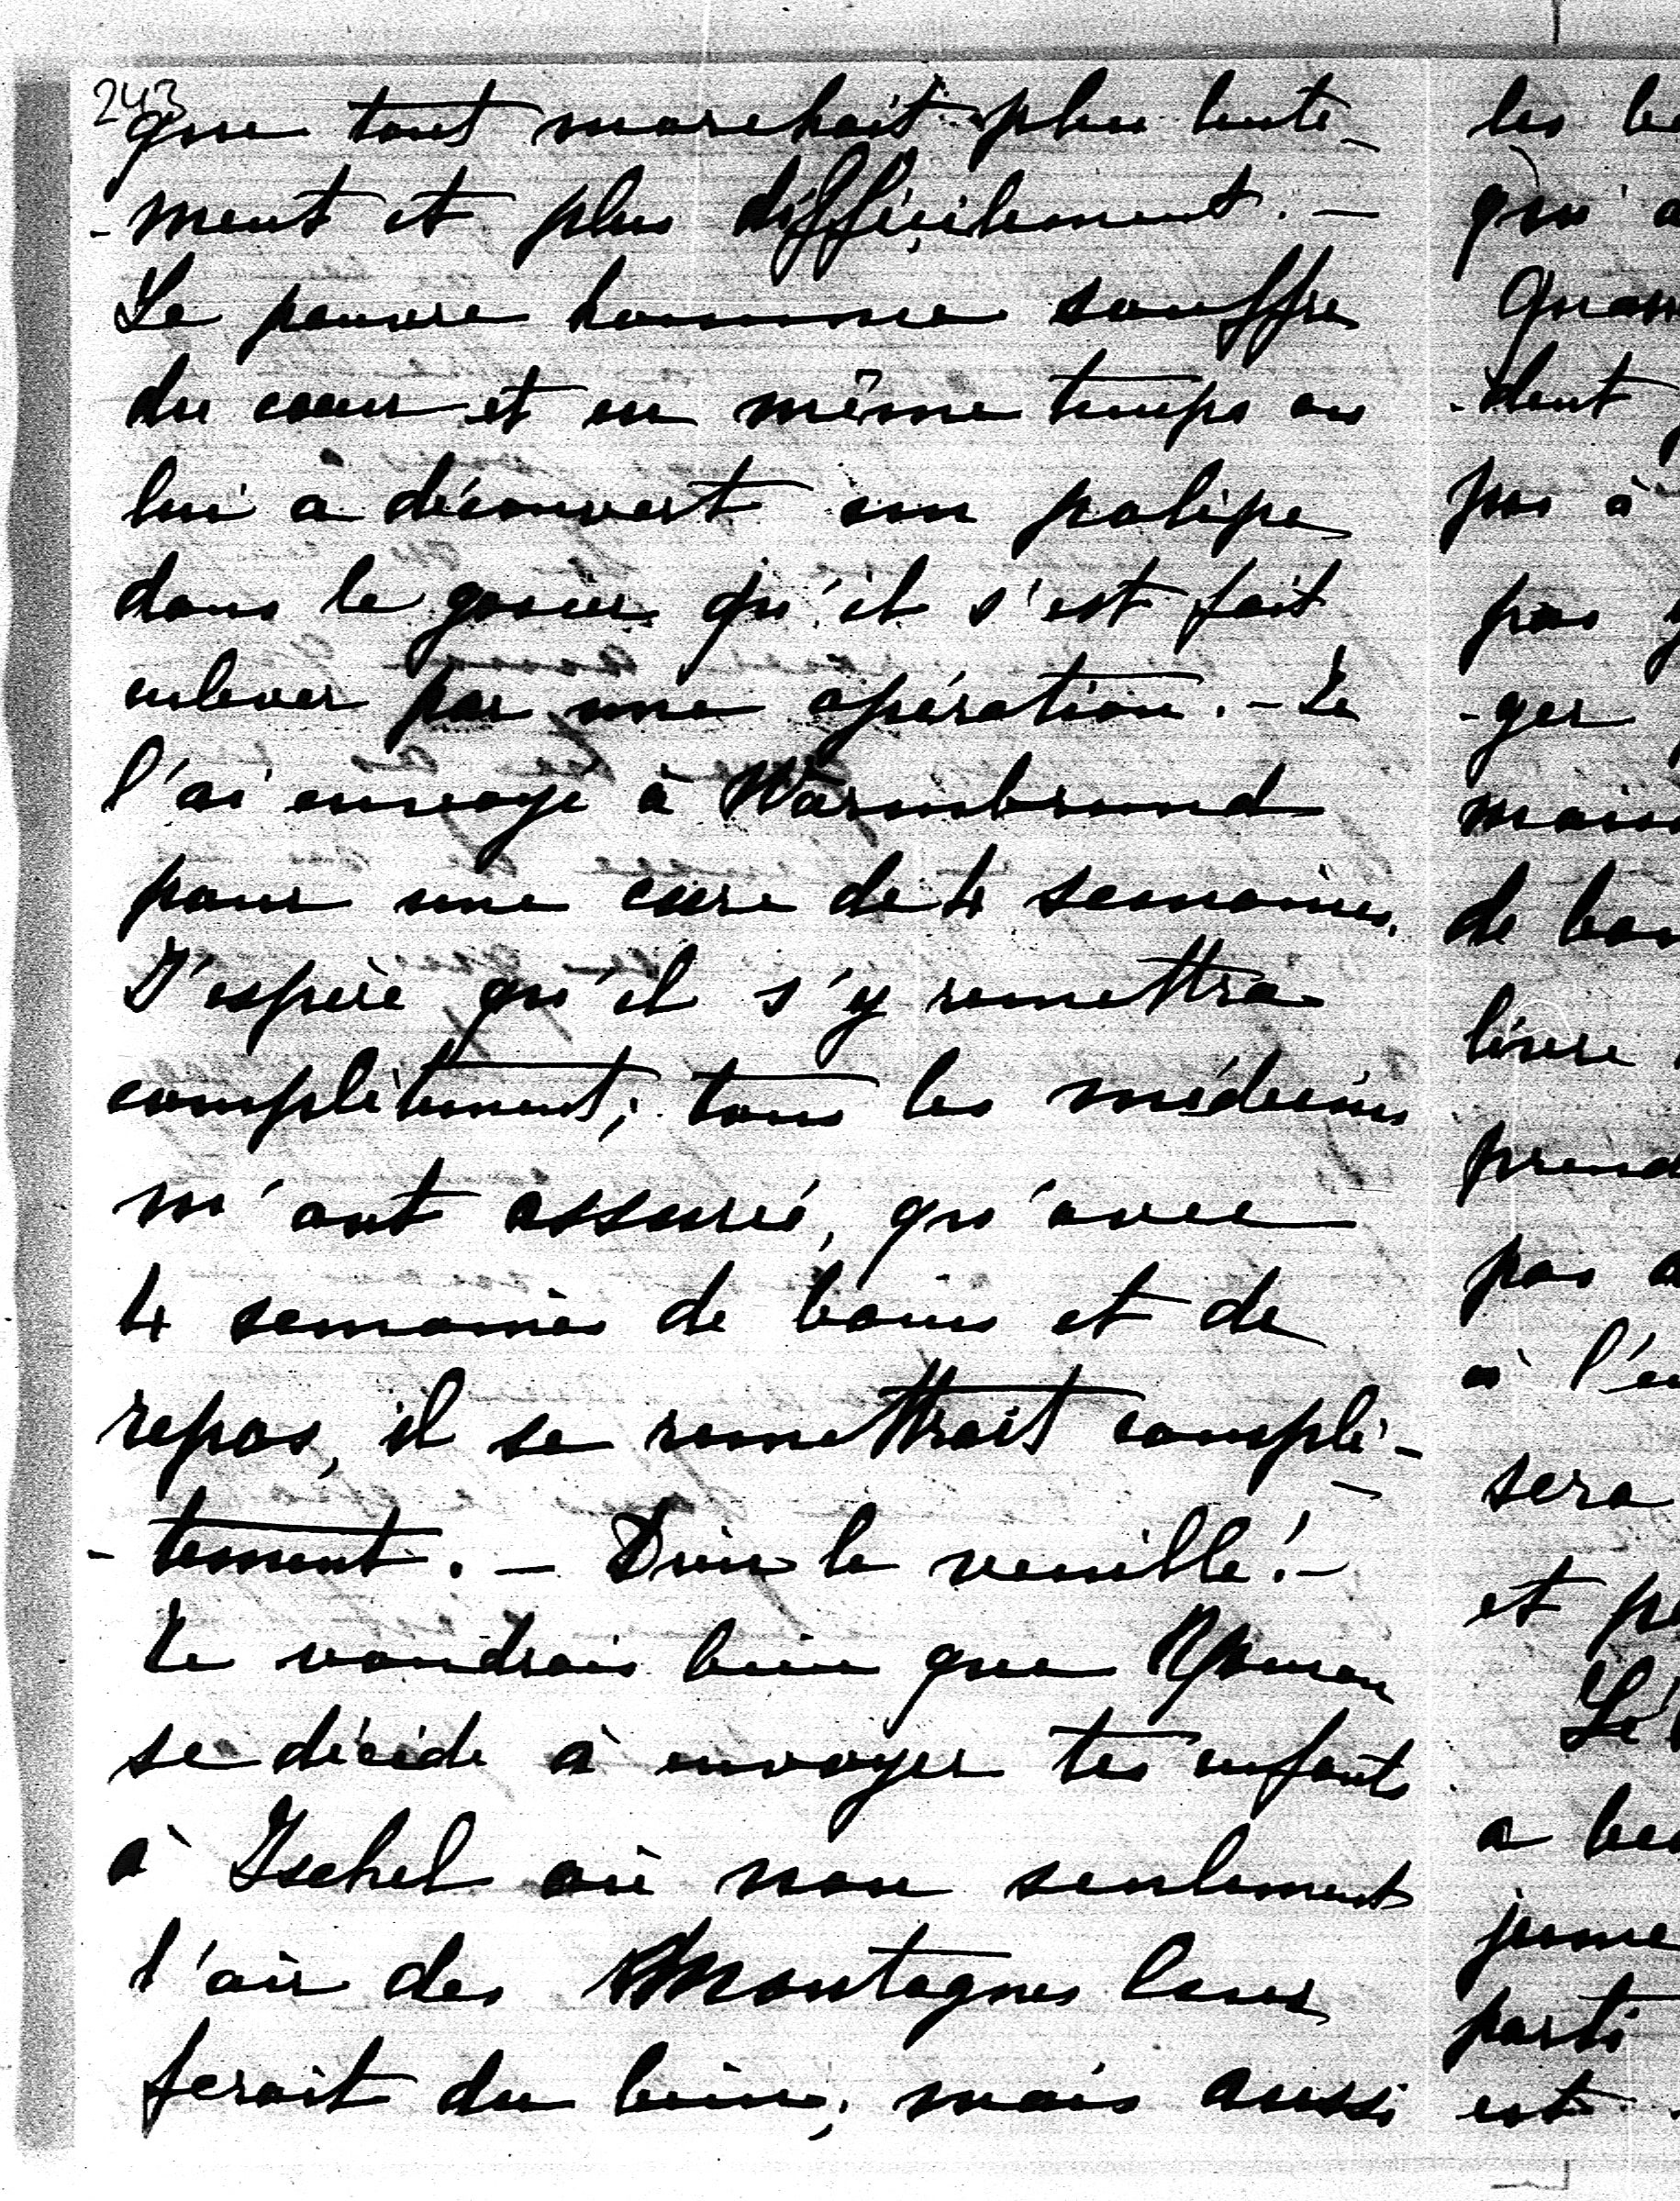 243
que tout marchait plus lente-
-ment et plus difficilement. -
Le pauvre homme souffre
du coeur et en même temps on
lui a découvert un polipe
dans le gosier qu'il s'est fait
enlever par une opération. - Je
l'ai envoyé à Warmbrund
pour une cure de 4 semaines.
J'espère qu'il s'y remettra
complètement; tous les médecins
m'ont assuré, qu'avec
4 semaines de bains et de
repos, il se remettrait complè-
-tement. - Dieu le veuille! -
Je voudrais bien que
se décide à envoyer tes enfants
à Ischel où non seulement
l'air des Montagnes leur
ferait du bien; mais aussi
les
qu'
-dent
pas à
pas
-ger
mais
de
livre
pas
à l'
sera
et
a
jeune
parti
est